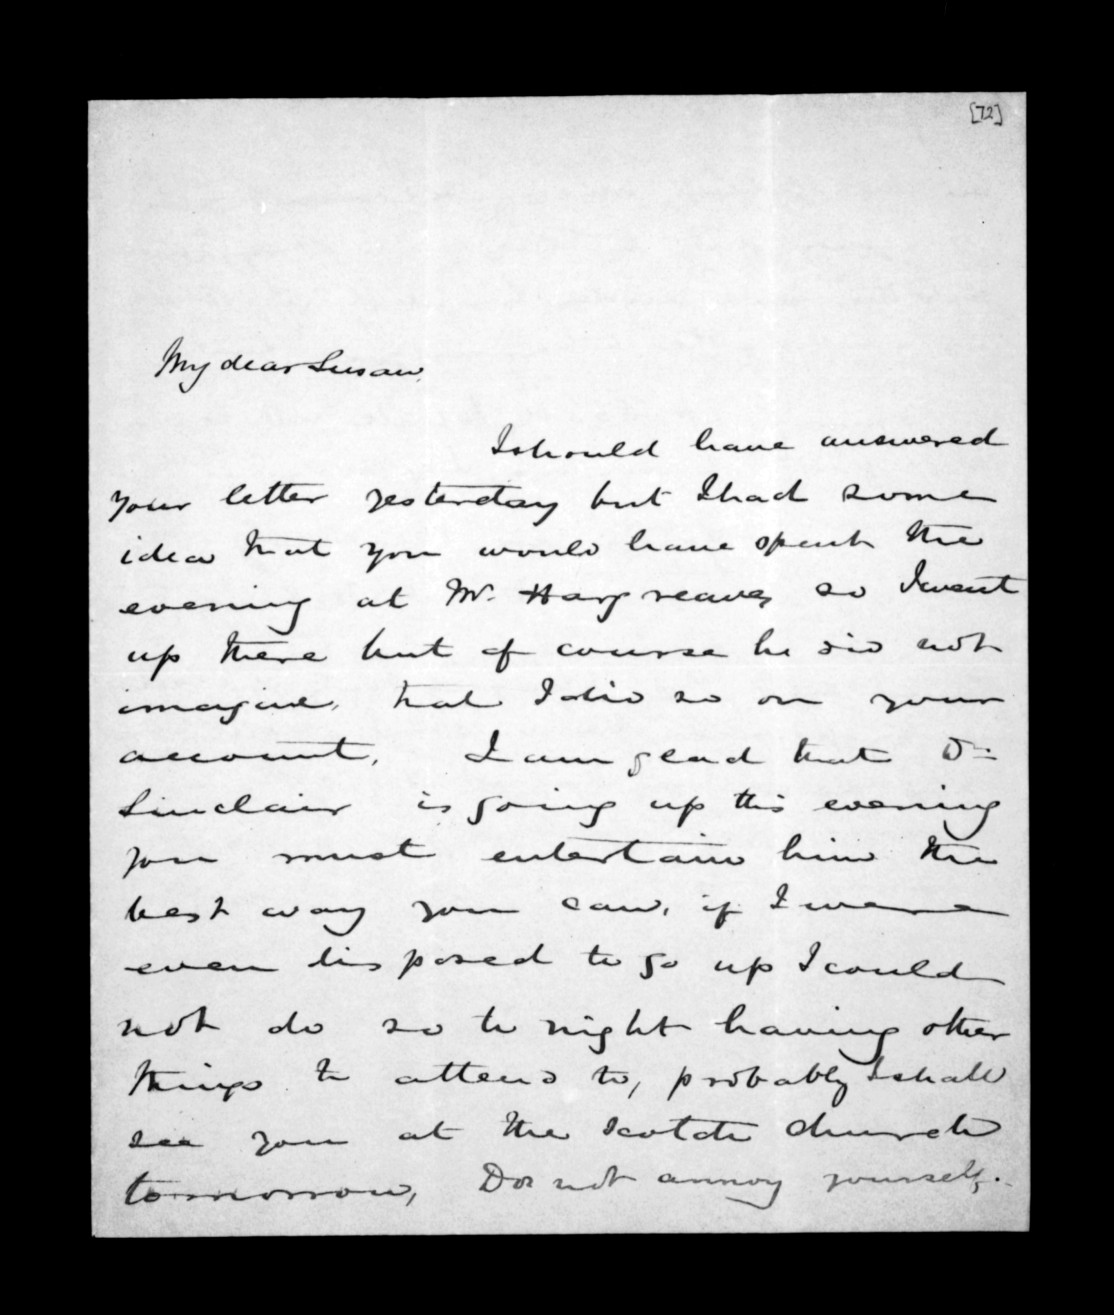 [72]
My dear Susan,
I should have answered
your letter yesterday but I had some
idea that you would have spent the
evening at Mr. Hargreaves so I went
up there but of course he did not
imagine, that I did so on your
account. I am glad that Dr
Sinclair is going up this evening
you must entertain him the
best way you can, if I were
even disposed to go up I could
not do so to night having other
things to attend to, probably I shall
see you at the Scotch church
tomorrow, Do not annoy yourself.